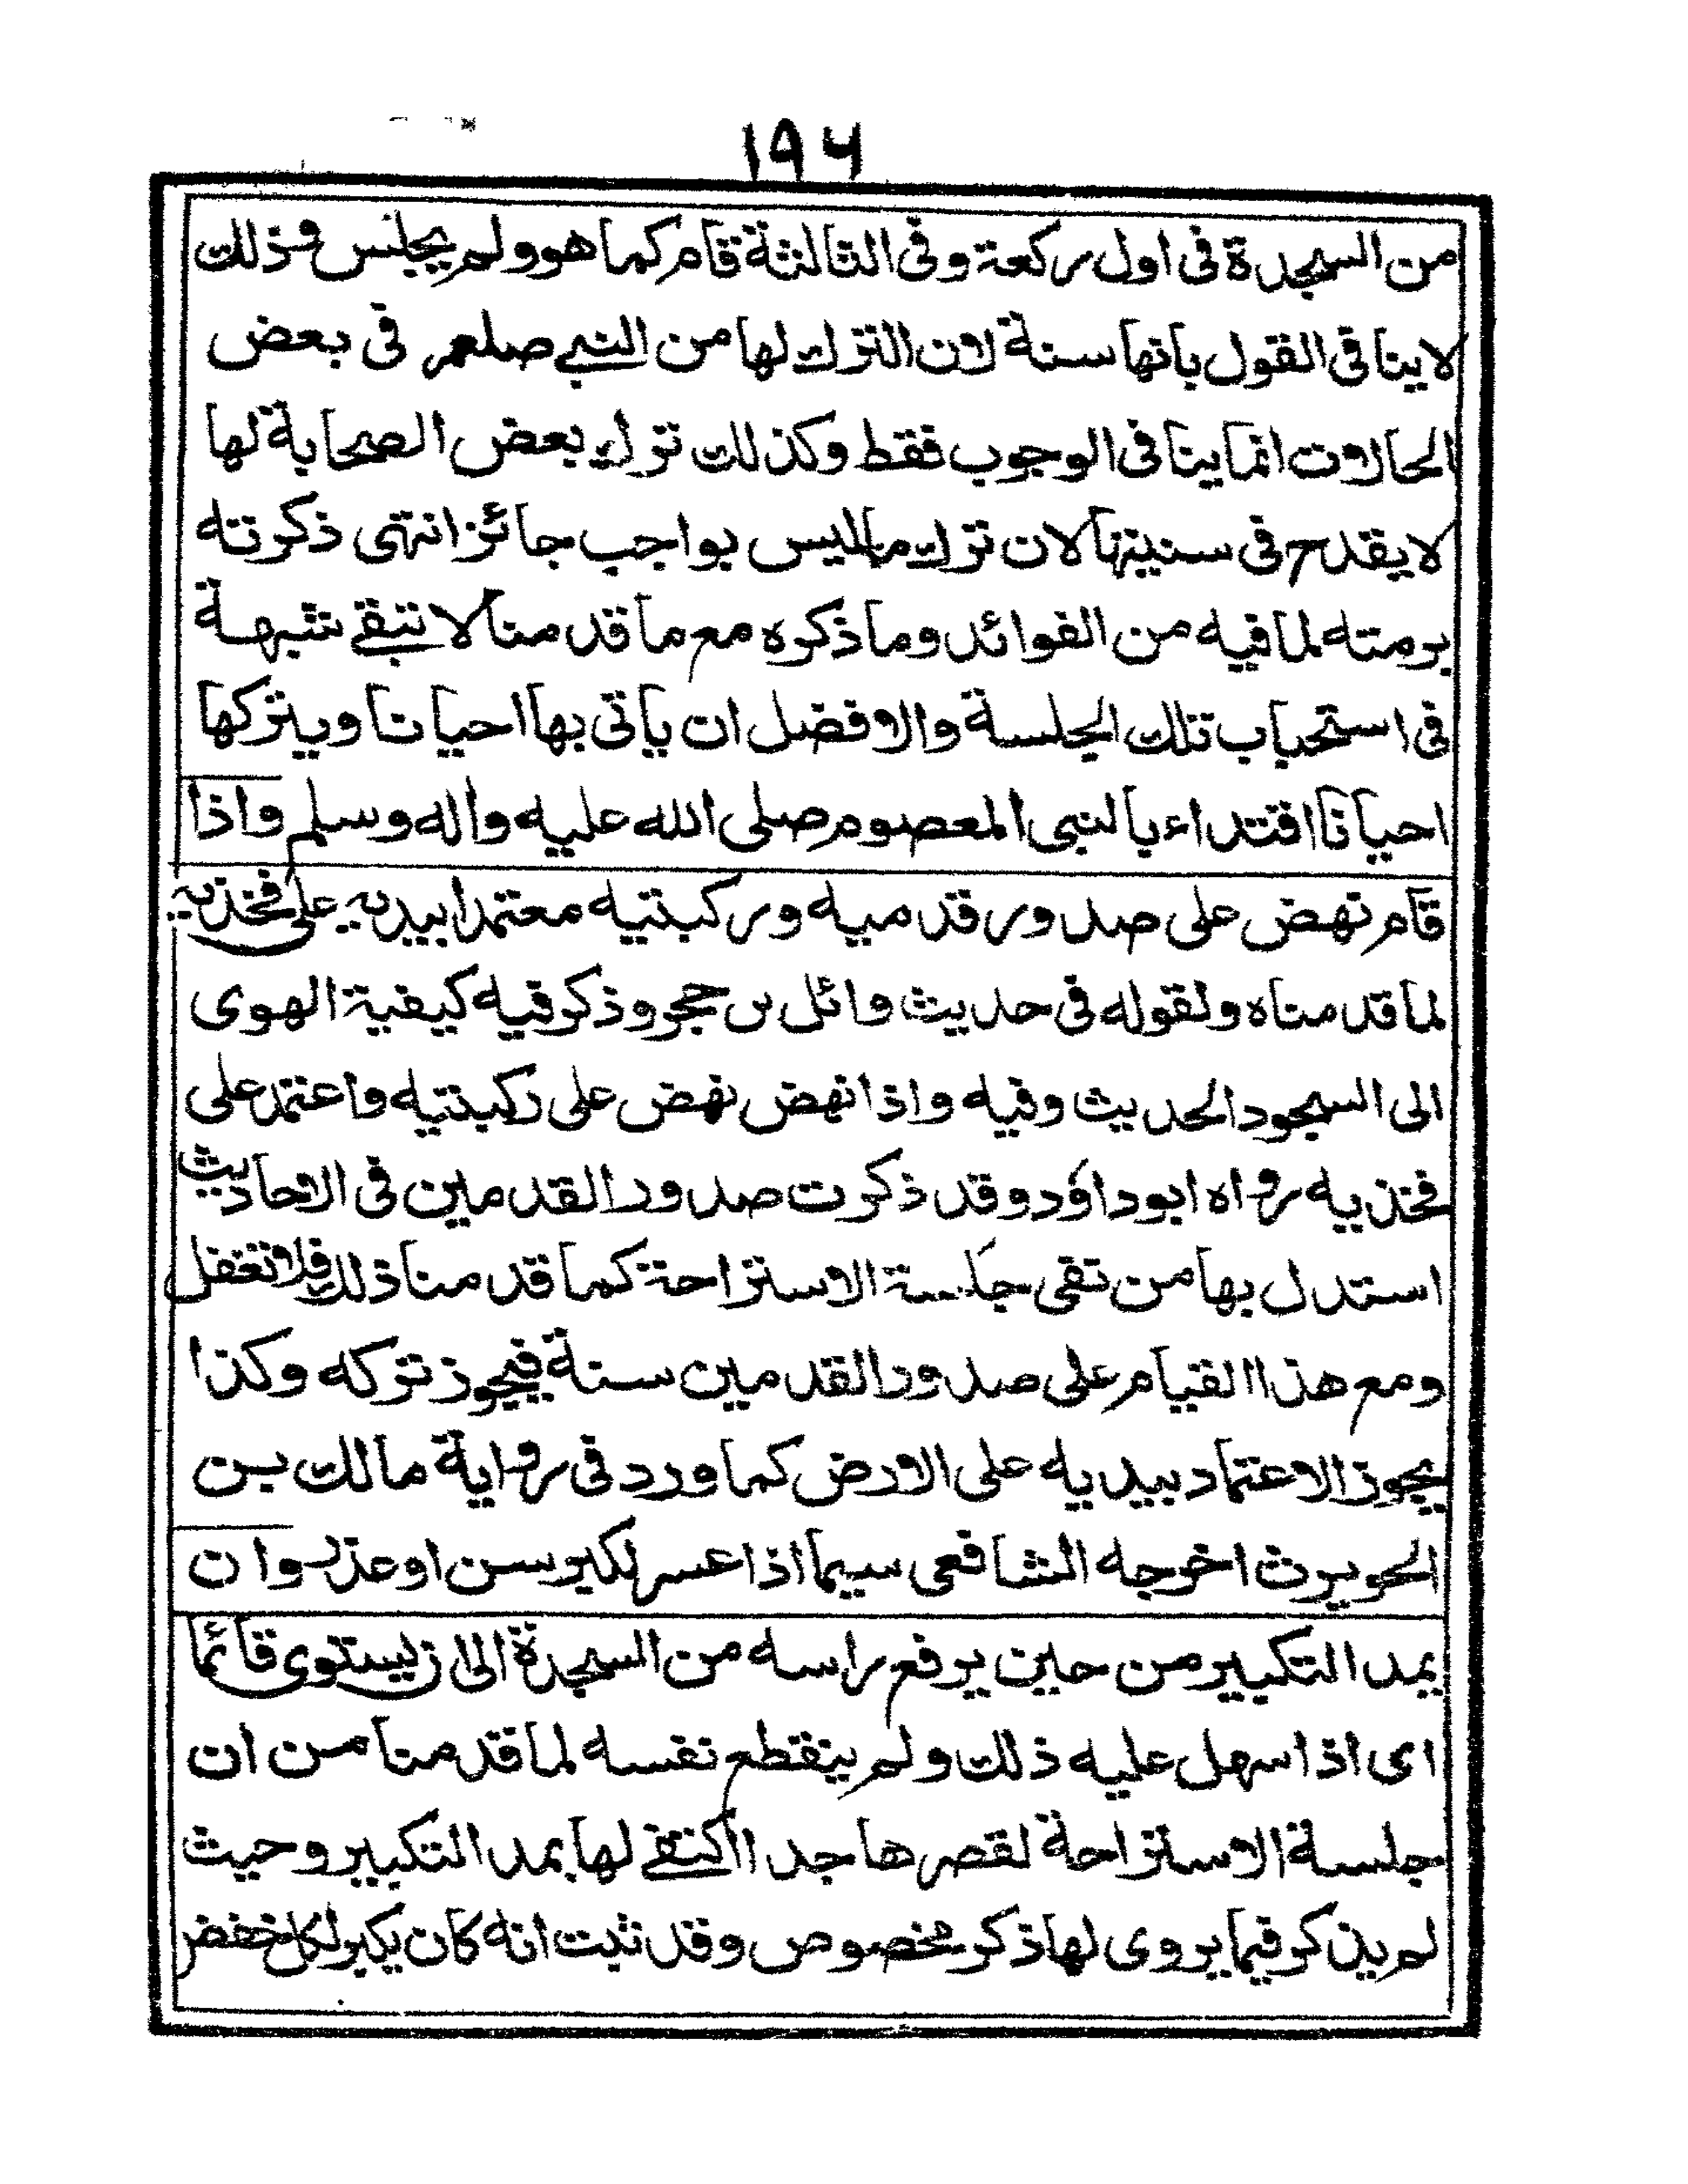 ١٩٦
من السجدة فى اول ركعة وفى الثالثة قام كما هو ولم يجلس فذلك
لا ينافى القول بانها سنة لان الترك لها من النبي صلعم فى بعض
الحالات انما ينافى الوجوب فقط وكذلك ترك بعض الصحابة لها
لا يقدح فى سنيتها لان ترك ما ليس بواجب جائز انتهى ذكرته
برمته لما فيه من الفوائد وما ذكره مع ما قدمنا لا تبقے شبهة
فى استحباب تلك الجلسة والافضل ان ياتى بها احيانا ويتركها
احيانا اقتداء بالنبى المعصوم صلى الله عليه واله وسلم واذا
قام نهض على صدور قدميه وركبتيه معتمدا بيديه على فخذيه
لما قدمناه ولقوله فى حديث وائل بن حجر وذكر فيه كيفية الهوى
الى السجود الحديث وفيه واذا نهض نهض على ركبتيه واعتمد على
فخذيه رواه ابو داؤد وقد ذكرت صدور القدمين فى الاحاديث
استدل بها من نفى جلسة الاستراحة كما قدمنا ذلك فلا تغفل
ومع هذا القيام على صدور القدمين سنة فيجوز تركه وكذا
يجوز الاعتماد بيديه على الارض كما ورد فى رواية مالك بن
الحويرث اخرجه الشافعى سيما اذا عسر لكبر سن او عذر وان
يمد التكبير من حين يرفع راسه من السجدة الى ان يستوى قائما
اى اذا سهل عليه ذلك ولم ينقطع نفسه لما قدمنا من ان
جلسة الاستراحة لقصرها جدا اكتفے لها بمد التكبير وحيث
لم يذكر فيما يروى لها ذكر مخصوص وقد ثبت انه كان يكبر لكل خفض